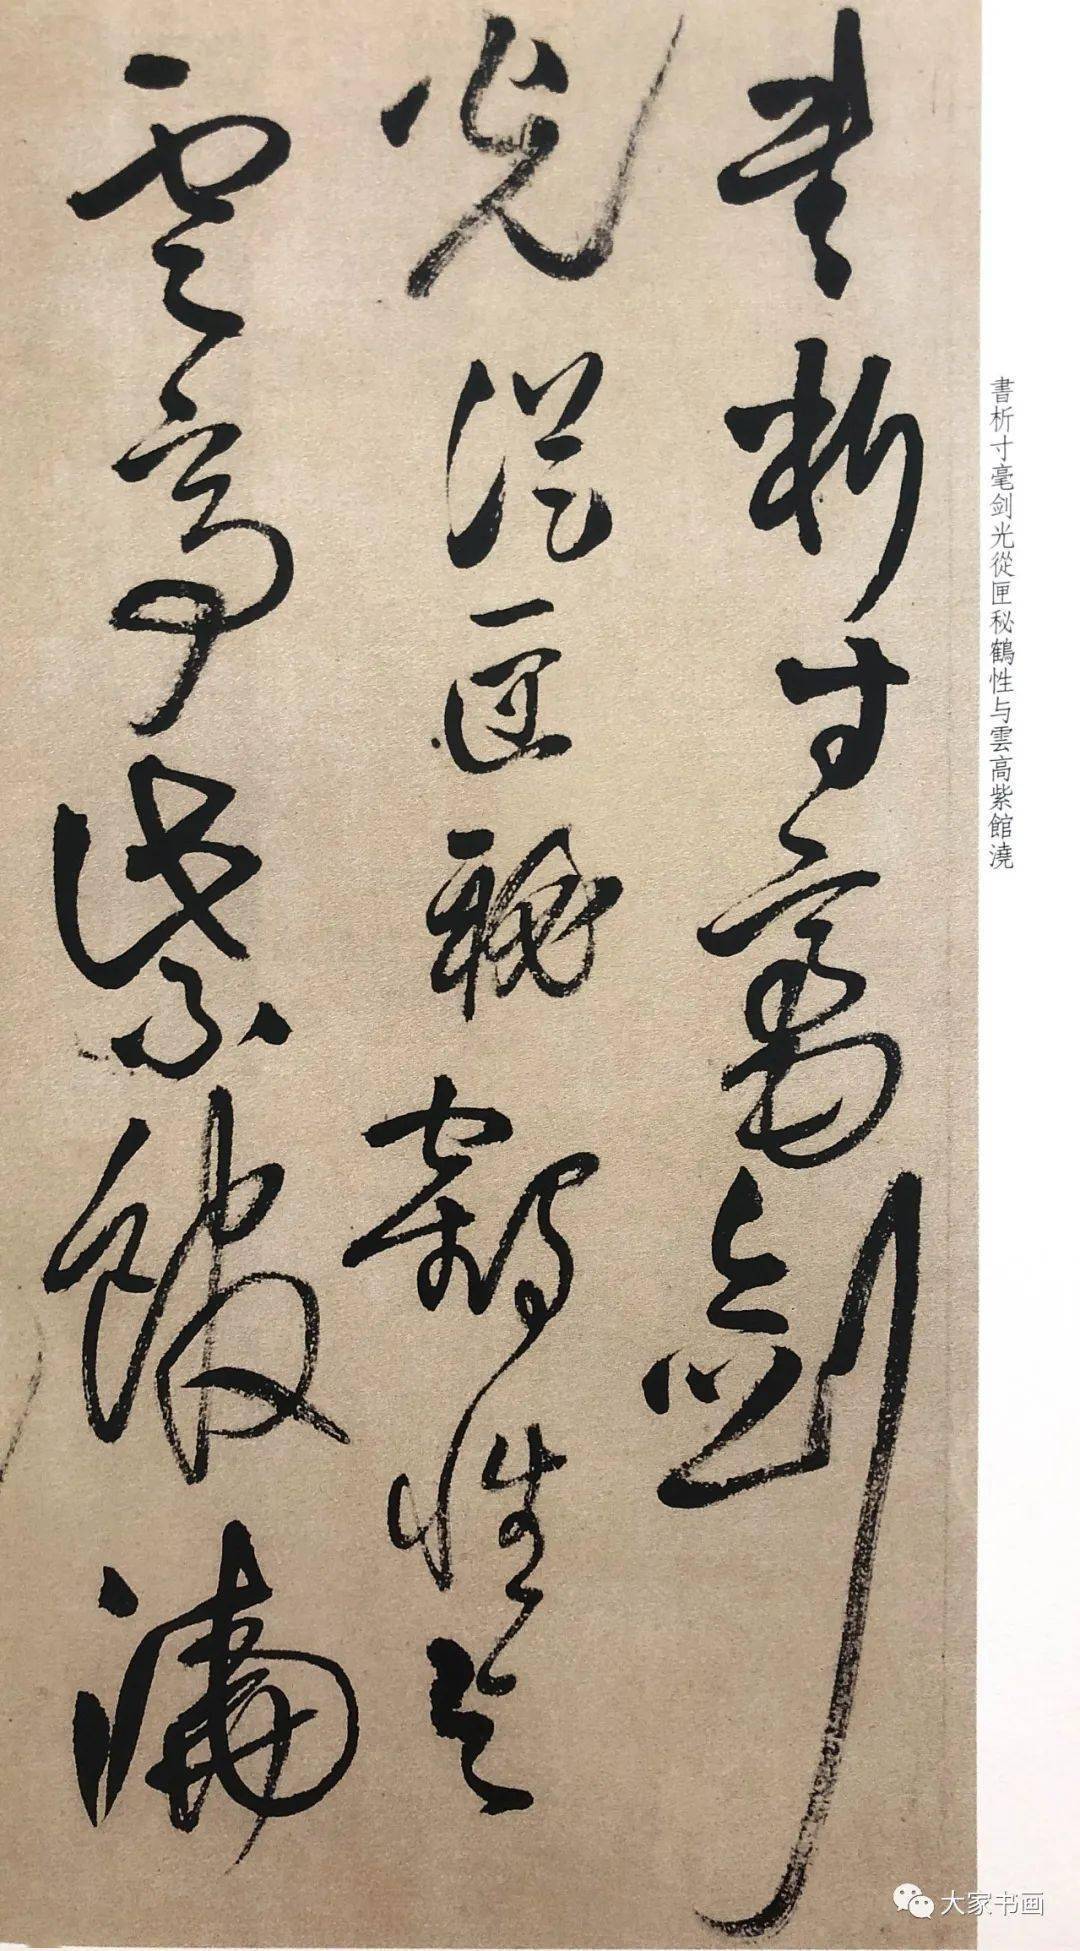 書析寸毫剑
光從匣秘鶴性与
雲高紫館澆
書析寸毫剑光從匣秘鶴性与雲高紫館澆
大家书画